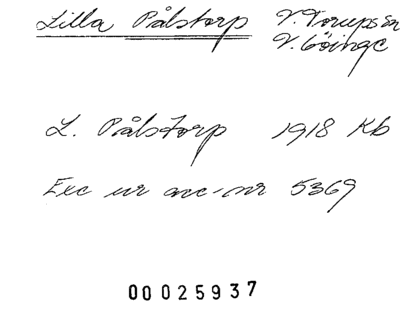 Lilla Pålstorp V. Torups sn
V. Göinge
L. Pålstorp 1918 Kb
Exc ur acc-nr 5369
00025937